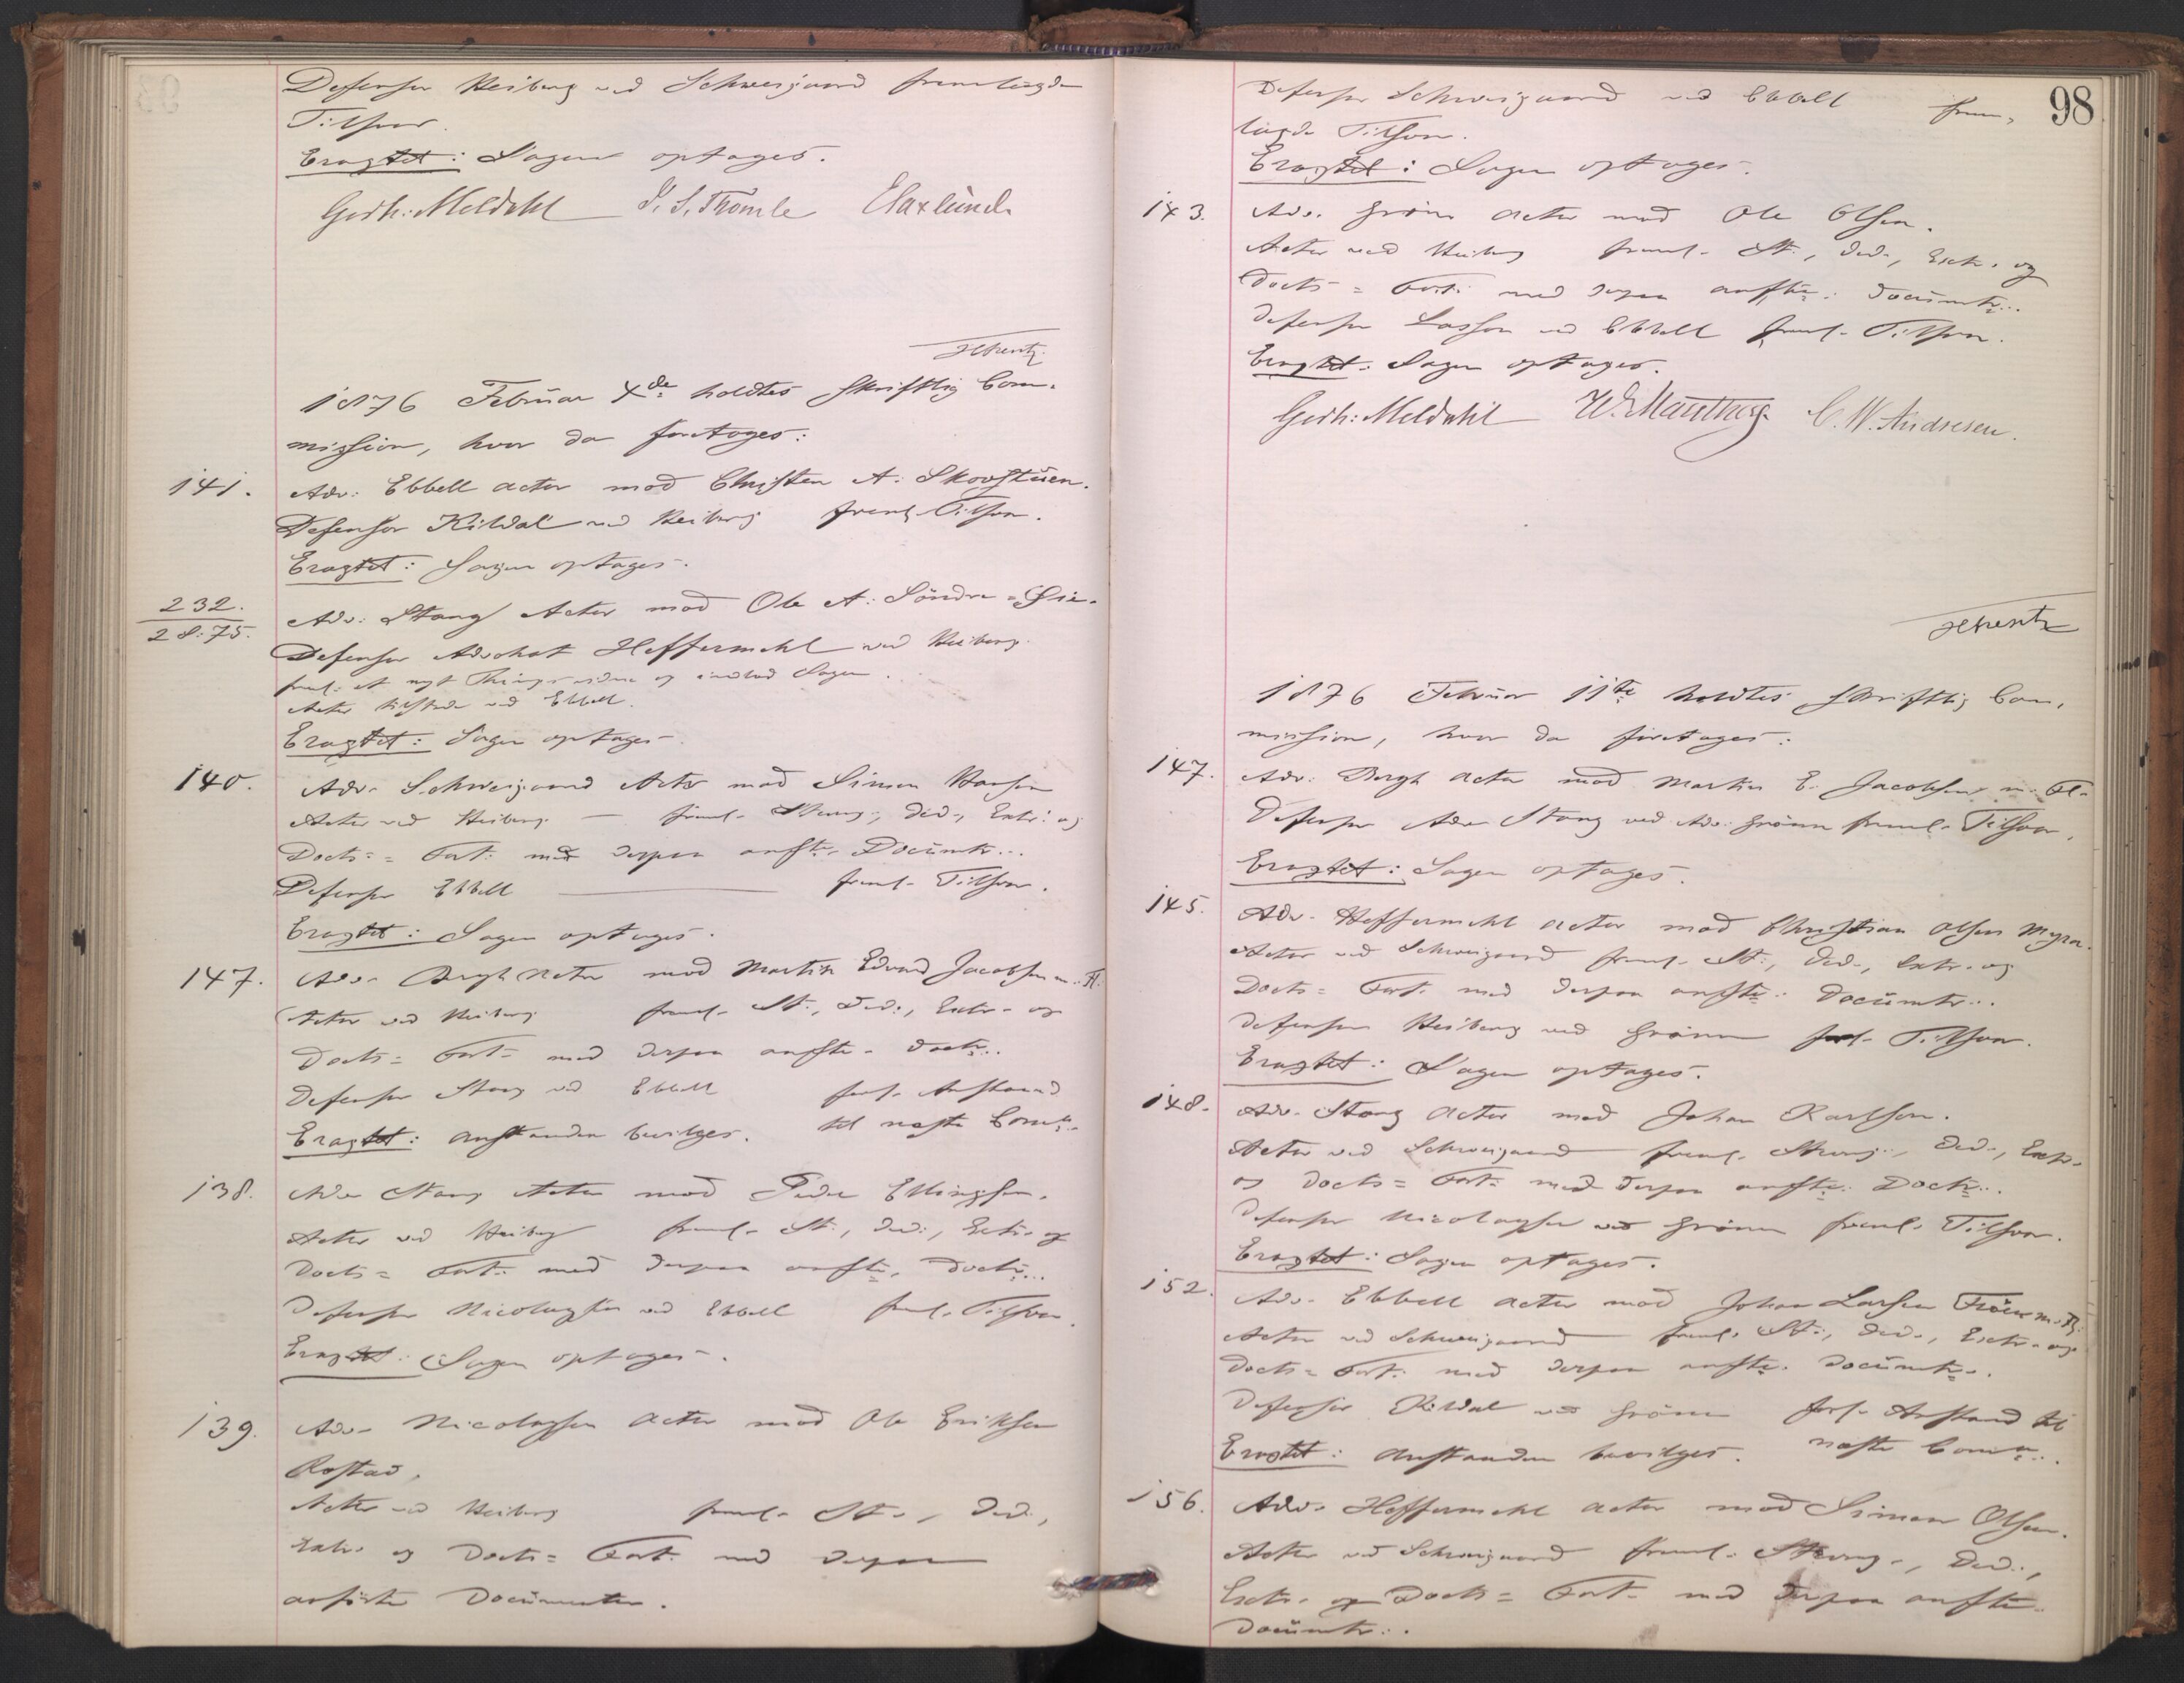 Defensor Heiberg ved Schweigaard fremlagde
Tilsvar.
Eragtet: Sagen optages.
Gerh: Meldahl J. S. Thomle E Saxlund
1876 Februar 4de holdtes skriftlig Com-
mission, hvor da foretoges:
141. Adv. Ebbell Actor mod Christen A. Skovstuen.
Defensor Kildal ved Heiberg freml. Tilsvar.
Eragtet: Sagen optages.
232.
28:75. Adv: Stang Actor mod Ole A. Söndre
Defensor Advokat Heffermehl ved Heiberg
freml. et nyt Thingsvidne og indlod Sagen.
Actor tilstede ved Ebbell.
Eragtet: Sagen optages.
140. Adv. Schweigaard Actor mod Simen Hansen
Actor ved Heiberg — freml. Stevng., Ded., Extr. og
Docts = Fort. med derpaa anfte. Documtr..
Defensor Ebbell — freml. Tilsvar.
Eragtet: Sagen optages.
147. Adv. Bergh Actor mod Martin Edvard Jacobsen m. Fl.
Actor ved Heiberg freml. St., Ded., Extr. og
Docts = Fort. med derpaa anfte. Doctr..
Defensor Stang ved Ebbell forl. Anstand
Eragtet: Anstanden bevilges. til næste Comn.
138. Adv. Stang Actor mod Peder Ellingsen.
Actor ved Heiberg freml. St., Ded., Extr. og
Docts = Fort. med derpaa anfte. Doctr..
Defensor Nicolaysen ved Ebbell freml. Tilsvar.
Eragtet: Sagen optages.
139. Adv. Nicolaysen Actor mod Ole Eriksen
Rostad.
Actor ved Heiberg freml. St., Ded.,
Extr. og Docts = Fort. med derpaa
anförte Documenter.
98
Defensor Schweigaard ved Ebbell frem-
lagde Tilsvar.
Eragtet: Sagen optages.
143. Adv. Grönn Actor mod Ole Olsen.
Actor ved Heiberg freml. St., Ded., Extr. og
Docts = Fort. med derpaa anfte. Documtr..
Defensor Lasson ved Ebbell freml. Tilsvar.
Eragtet: Sagen optages.
Gerh: Meldahl W. Manthey C. W. Andresen.
1876 Februar 11te holdtes skriftlig Com-
mission, hvor da foretoges:
147. Adv. Bergh Actor mod Martin E. Jacobsen m. Fl.
Defensor Adv. Stang ved Adv. Grönn freml. Tilsvar.
Eragtet: Sagen optages.
145. Adv. Heffermehl Actor mod Christian Olsen Myra.
Actor ved Schweigaard freml. St., Ded., Extr. og
Docts = Fort. med derpaa anfte. Documtr..
Defensor Heiberg ved Grönn freml. Tilsvar.
Eragtet: Sagen optages.
148. Adv. Stang Actor mod Johan Karlsen.
Actor ved Schweigaard freml. Stevng., Ded., Extr.
og Docts = Fort. med derpaa anfte. Doctr..
Defensor Nicolaysen ved Grönn freml. Tilsvar.
Eragtet: Sagen optages.
152. Adv. Ebbell Actor mod Johan Larsen m. Fl.
Actor ved Schweigaard freml. St., Ded., Extr. og
Docts = Fort. med derpaa anfte. Documtr.
Defensor Kildal ved Grönn forl. Anstand til
Eragtet: Anstanden bevilges. næste Comn..
156. Adv. Heffermehl Actor mod Simen Olsen.
Actor ved Schweigaard freml. Stevng., Ded.,
Extr. og Docts = Fort. med derpaa anfte.
Documtr..